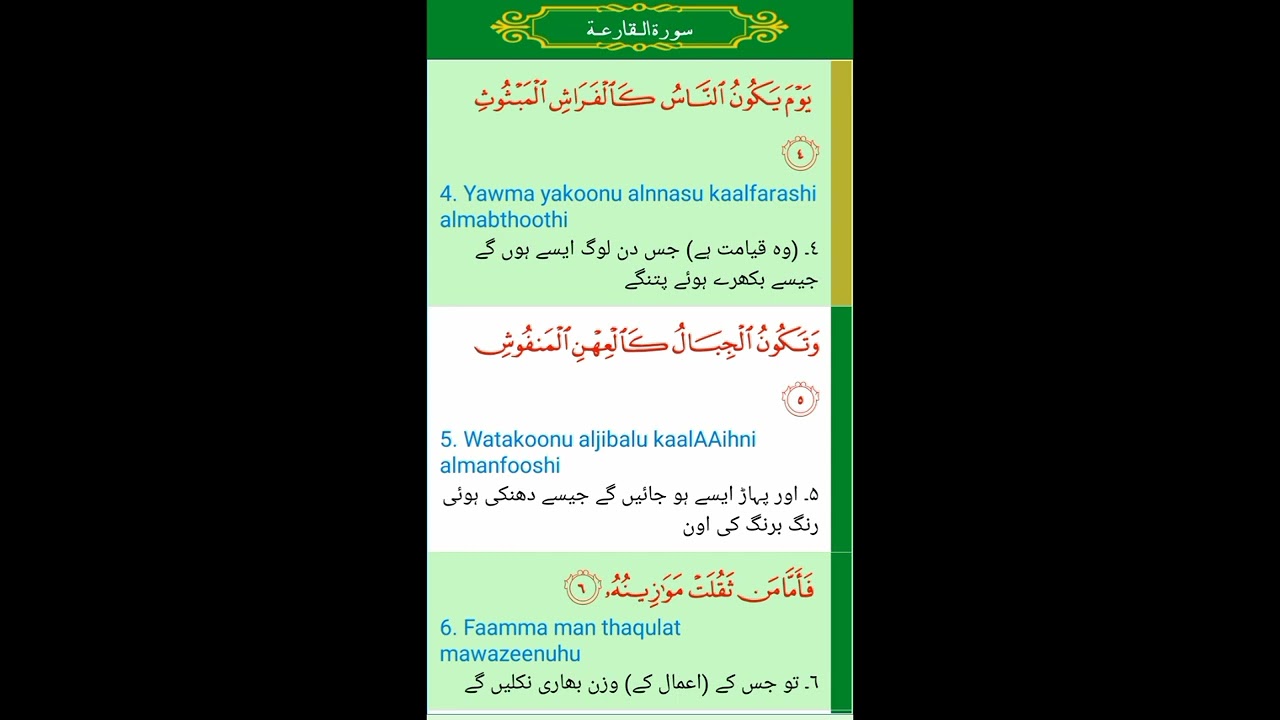 سورة القارعة
يَوْمَ يَكُونُ ٱلنَّاسُ كَٱلْفَرَاشِ ٱلْمَبْثُوثِ
٤
4. Yawma yakoonu alnnasu kaalfarashi
almabthoothi
٤۔ (وہ قیامت ہے) جس دن لوگ ایسے ہوں گے
جیسے بکھرے ہوئے پتنگے
وَتَكُونُ ٱلْجِبَالُ كَٱلْعِهْنِ ٱلْمَنفُوشِ
٥
5. Watakoonu aljibalu kaalAAihni
almanfooshi
۵۔ اور پہاڑ ایسے ہو جائیں گے جیسے دھنکی ہوئی
رنگ برنگ کی اون
فَأَمَّا مَن ثَقُلَتْ مَوَٰزِينُهُۥ ٦
6. Faamma man thaqulat
mawazeenuhu
٦۔ تو جس کے (اعمال کے) وزن بھاری نکلیں گے